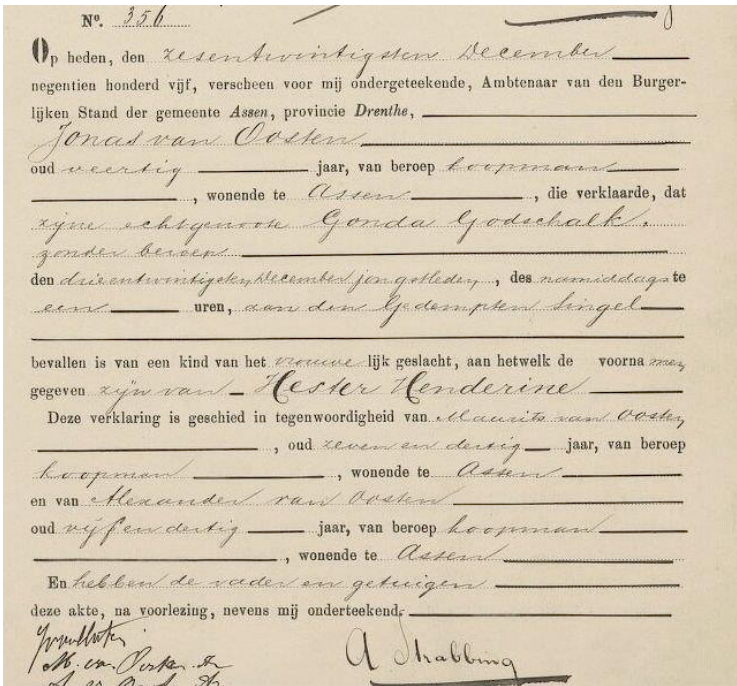 Nº. 356
Op heden, den zesentwintigsten December
negentien honderd vijf, verscheen voor mij ondergeteekende, Ambtenaar van den Burger-
lijken Stand der gemeente Assen, provincie Drenthe,
Jonas van Oosten
oud veertig jaar, van beroep koopman
, wonende te Assen , die verklaarde, dat
zijne echtgenoote Gonda Godschalk,
zonder beroep
den drieentwintigsten December jongstleden, des namiddags te
een uren, aan den Gedempten Singel
bevallen is van een kind van het vrouwelijk geslacht, aan hetwelk de voornamen
gegeven zijn van Hester Henderine
Deze verklaring is geschied in tegenwoordigheid van Maurits van Oosten
, oud zeven en dertig jaar, van beroep
koopman , wonende te Assen
en van Alexander van Oosten
oud vijf en dertig jaar, van beroep koopman
, wonende te Assen
En hebben de vader en getuigen
deze akte, na voorlezing, nevens mij onderteekend.
M. van
A Strabbing